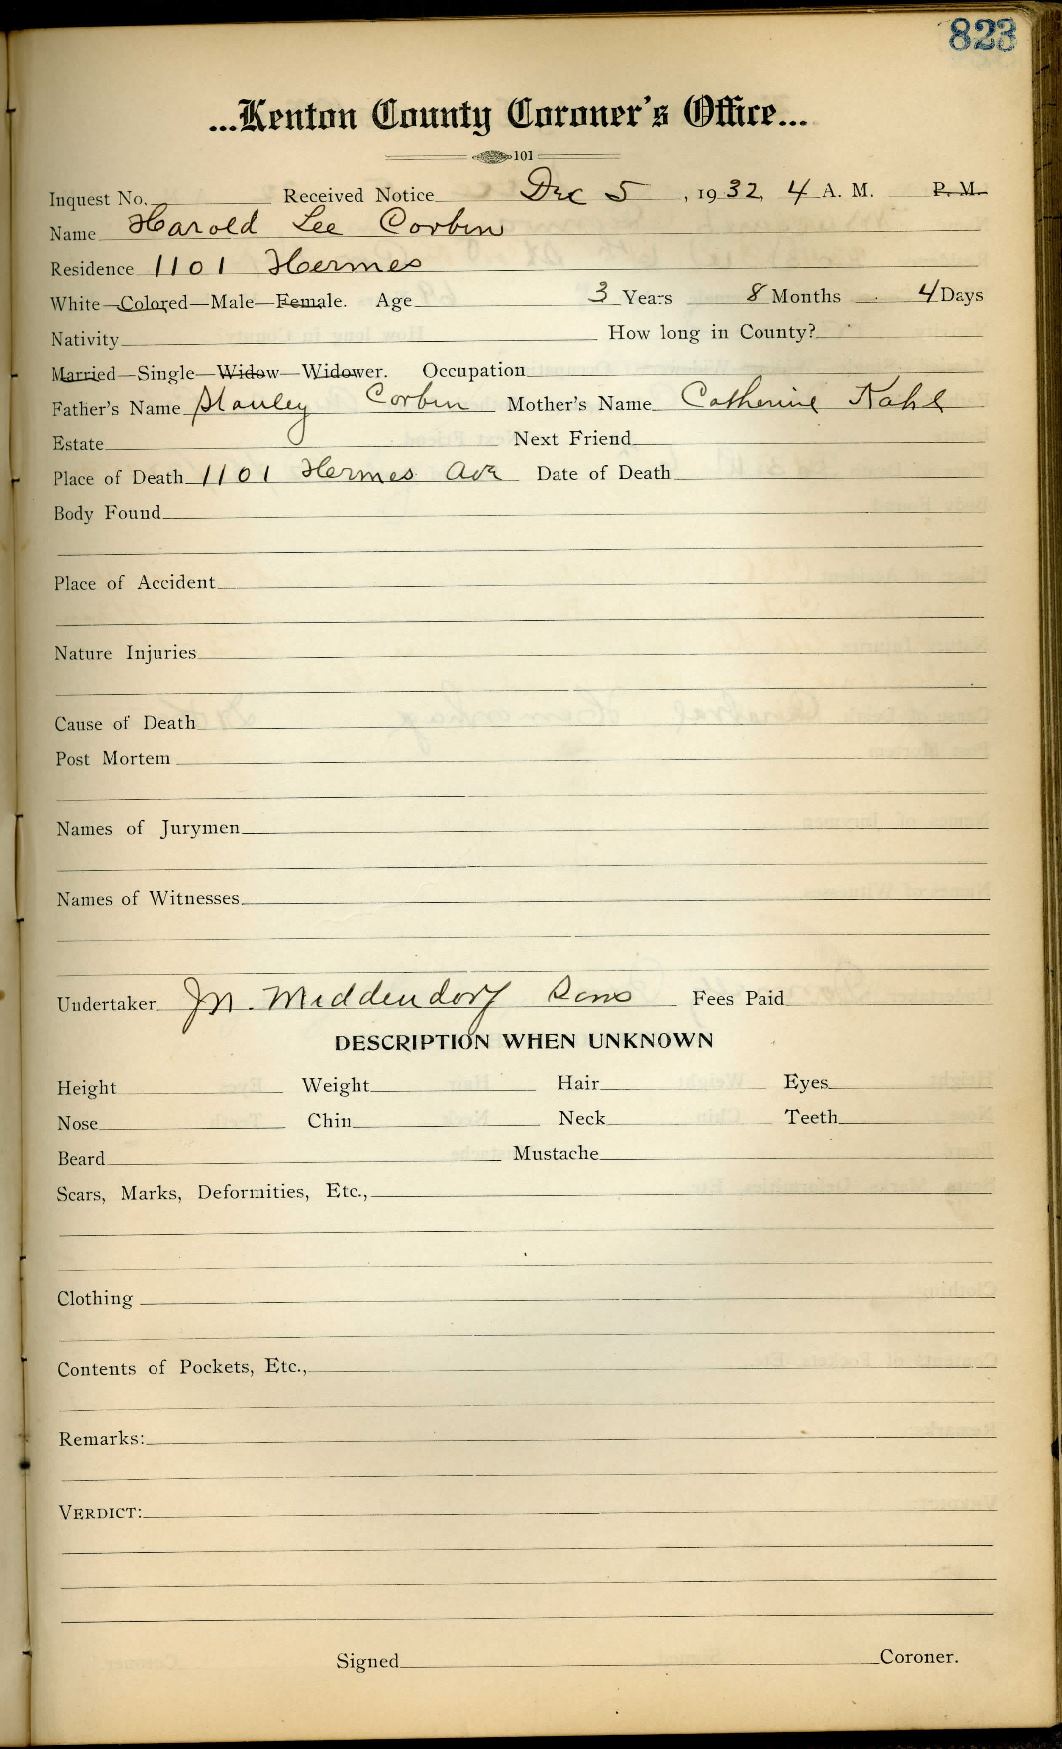 823
...Kenton County Coroner's Office...
101
Inquest No. Received Notice Dec 5, 1932, 4 A. M. P. M.
Name Harold Lee Corbin
Residence 1101 Hermes
White—Colored—Male—Female. Age 3 Years 8 Months 4 Days
Nativity How long in County?
Married—Single—Widow—Widower. Occupation
Father's Name Stanley Corbin Mother's Name Catherine Kahl
Estate Next Friend
Place of Death 1101 Hermes Ave Date of Death
Body Found
Place of Accident
Nature Injuries
Cause of Death
Post Mortem
Names of Jurymen
Names of Witnesses
Undertaker Jn. Middendorf Sons Fees Paid
DESCRIPTION WHEN UNKNOWN
Height Weight Hair Eyes
Nose Chin Neck Teeth
Beard Mustache
Scars, Marks, Deformities, Etc.,
Clothing
Contents of Pockets, Etc.,
Remarks:
VERDICT:
Signed Coroner.